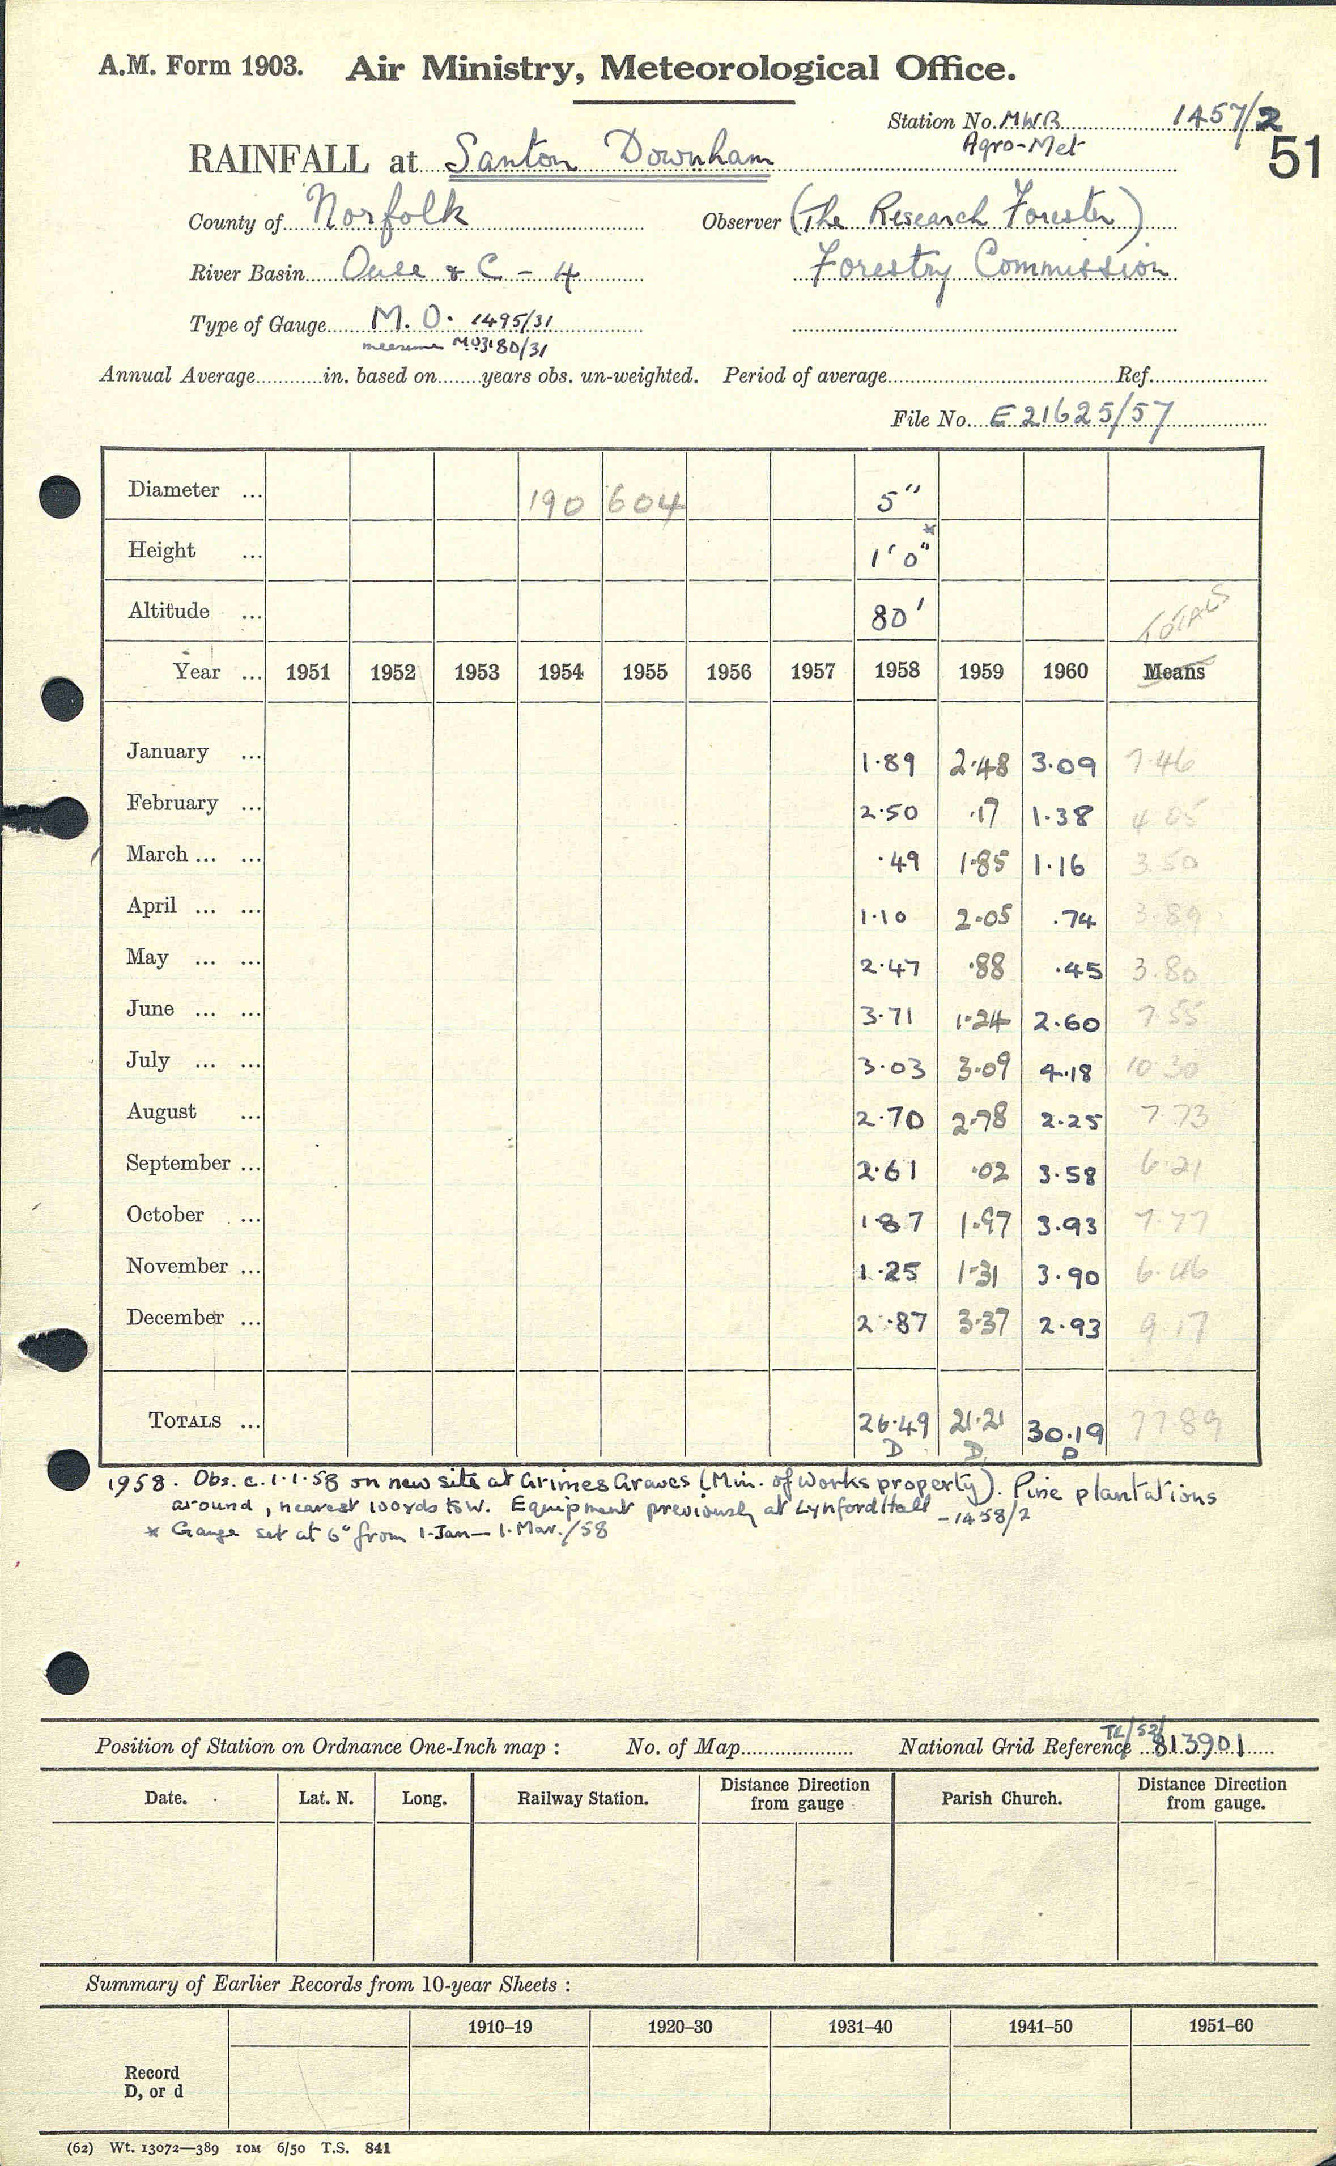 A.M. Form 1903. Air Ministry, Meteorological Office.
Station No. MWR 1457/2
Agro-Met
51
RAINFALL at Santon Downham
County of Norfolk Observer (The Research Forester)
River Basin Ouse & C - 4 Forestry Commission
Type of Gauge M.O. 1495/31
measure MO3180/31
Annual Average in. based on years obs. un-weighted. Period of average Ref.
File No. E21625/57
Diameter ... 190 604 5"
Height ... 1'0" *
Altitude ... 80'
TOTALS
Year ... 1951 1952 1953 1954 1955 1956 1957 1958 1959 1960 Means
January ... 1.89 2.48 3.09 7.46
February ... 2.50 .17 1.38 4.05
March ... ... .49 1.85 1.16 3.50
April ... ... 1.10 2.05 .74 3.89
May ... ... 2.47 .88 .45 3.80
June ... ... 3.71 1.24 2.60 7.55
July ... ... 3.03 3.09 4.18 10.30
August ... 2.70 2.78 2.25 7.73
September ... 2.61 .02 3.58 6.21
October ... 1.87 1.97 3.93 7.77
November ... 1.25 1.31 3.90 6.46
December ... 2.87 3.37 2.93 9.17
TOTALS ... 26.49 21.21 30.19 77.89
D D D
1958. Obs. c. 1.1.58 on new site at Grimes Graves (Min. of Works property). Pine plantations
around, nearest 100yds to W. Equipment previously at Lynford Hall - 1458/2
* Gauge set at 6" from 1.Jan - 1.Mar./58
Position of Station on Ordnance One-Inch map : No. of Map National Grid Reference TL/52/ 813901
Date. Lat. N. Long. Railway Station. Distance Direction from gauge Parish Church. Distance Direction from gauge.
Summary of Earlier Records from 10-year Sheets :
1910–19 1920–30 1931–40 1941–50 1951–60
Record
D, or d
(62) Wt. 13072—389 10M 6/50 T.S. 841